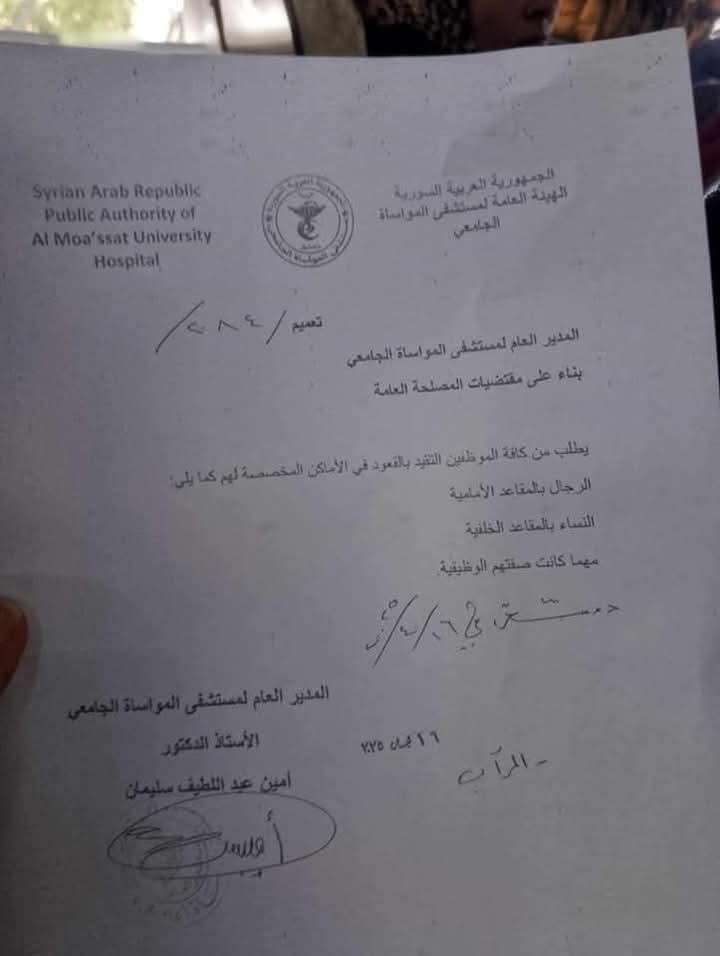 Syrian Arab Republic
Public Authority of
Al Moa'ssat University
Hospital
الجمهورية العربية السورية
الهيئة العامة لمستشفى المواساة
الجامعي
تعميم / ٢٨٤ /
المدير العام لمستشفى المواساة الجامعي
بناء على مقتضيات المصلحة العامة
يطلب من كافة الموظفين التقيد بالقعود في الأماكن المخصصة لهم كما يلي:
الرجال بالمقاعد الأمامية
النساء بالمقاعد الخلفية
مهما كانت صفتهم الوظيفية.
دمشق في ١٦/٤/
المدير العام لمستشفى المواساة الجامعي
الأستاذ الدكتور
أمين عبد اللطيف سليمان
١٦ نيسان ٢٠٢٥
- المرآب